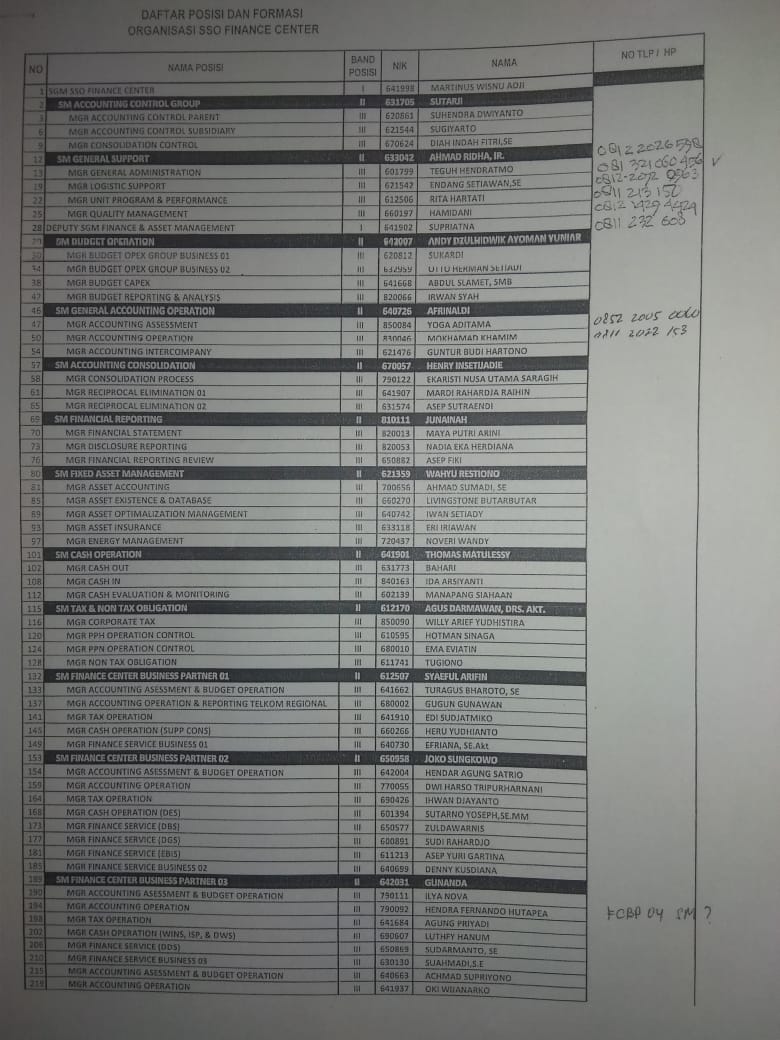 DAFTAR POSISI DAN FORMASI
ORGANISASI SSO FINANCE CENTER
NO NAMA POSISI BAND POSISI NIK NAMA NO TLP / HP
1 SGM SSO FINANCE CENTER I 641998 MARTINUS WISNU ADJI
2 SM ACCOUNTING CONTROL GROUP II 631705 SUTARJI
3 MGR ACCOUNTING CONTROL PARENT III 620861 SUHENDRA DWIYANTO
6 MGR ACCOUNTING CONTROL SUBSIDIARY III 621544 SUGIYARTO
9 MGR CONSOLIDATION CONTROL III 670624 DIAH INDAH FITRI,SE
12 SM GENERAL SUPPORT II 633042 AHMAD RIDHA, IR. 0812 2026 598
13 MGR GENERAL ADMINISTRATION III 601799 TEGUH HENDRATMO 081 321 060 456 ✓
19 MGR LOGISTIC SUPPORT III 621542 ENDANG SETIAWAN,SE 0812-2072 0563
22 MGR UNIT PROGRAM & PERFORMANCE III 612506 RITA HARTATI 0811 213 150
25 MGR QUALITY MANAGEMENT III 660197 HAMIDANI 0812 2429 4429
28 DEPUTY SGM FINANCE & ASSET MANAGEMENT I 641902 SUPRIATNA 0811 232 608
29 SM BUDGET OPERATION II 642007 ANDY DZULHIDWIK AYOMAN YUNIAR
30 MGR BUDGET OPEX GROUP BUSINESS 01 III 620812 SUKARDI
34 MGR BUDGET OPEX GROUP BUSINESS 02 III 632959 OTTO HERMAN SETIADI
38 MGR BUDGET CAPEX III 641668 ABDUL SLAMET, SMB
42 MGR BUDGET REPORTING & ANALYSIS III 820066 IRWAN SYAH
46 SM GENERAL ACCOUNTING OPERATION II 640726 AFRINALDI
47 MGR ACCOUNTING ASSESSMENT III 850084 YOGA ADITAMA 0852 2005 0060
50 MGR ACCOUNTING OPERATION III 830046 MOKHAMAD KHAMIM 0811 2022 153
54 MGR ACCOUNTING INTERCOMPANY III 621476 GUNTUR BUDI HARTONO
57 SM ACCOUNTING CONSOLIDATION II 670057 HENRY INSETIJADIE
58 MGR CONSOLIDATION PROCESS III 790122 EKARISTI NUSA UTAMA SARAGIH
61 MGR RECIPROCAL ELIMINATION 01 III 641907 MARDI RAHARDJA RAIHIN
65 MGR RECIPROCAL ELIMINATION 02 III 631574 ASEP SUTRAENDI
69 SM FINANCIAL REPORTING II 810111 JUNAINAH
70 MGR FINANCIAL STATEMENT III 820013 MAYA PUTRI ARINI
73 MGR DISCLOSURE REPORTING III 820053 NADIA EKA HERDIANA
76 MGR FINANCIAL REPORTING REVIEW III 650882 ASEP FIKI
80 SM FIXED ASSET MANAGEMENT II 621359 WAHYU RESTIONO
81 MGR ASSET ACCOUNTING III 700656 AHMAD SUMADI, SE
85 MGR ASSET EXISTENCE & DATABASE III 660270 LIVINGSTONE BUTARBUTAR
89 MGR ASSET OPTIMALIZATION MANAGEMENT III 640742 IWAN SETIADY
93 MGR ASSET INSURANCE III 633118 ERI IRIAWAN
97 MGR ENERGY MANAGEMENT III 720437 NOVERI WANDY
101 SM CASH OPERATION II 641901 THOMAS MATULESSY
102 MGR CASH OUT III 631773 BAHARI
108 MGR CASH IN III 840163 IDA ARSIYANTI
112 MGR CASH EVALUATION & MONITORING III 602139 MANAPANG SIAHAAN
115 SM TAX & NON TAX OBLIGATION II 612170 AGUS DARMAWAN, DRS. AKT.
116 MGR CORPORATE TAX III 850090 WILLY ARIEF YUDHISTIRA
120 MGR PPH OPERATION CONTROL III 610595 HOTMAN SINAGA
124 MGR PPN OPERATION CONTROL III 680010 EMA EVIATIN
128 MGR NON TAX OBLIGATION III 611741 TUGIONO
132 SM FINANCE CENTER BUSINESS PARTNER 01 II 612507 SYAEFUL ARIFIN
133 MGR ACCOUNTING ASESSMENT & BUDGET OPERATION III 641662 TURAGUS BHAROTO, SE
137 MGR ACCOUNTING OPERATION & REPORTING TELKOM REGIONAL III 680002 GUGUN GUNAWAN
141 MGR TAX OPERATION III 641910 EDI SUDJATMIKO
145 MGR CASH OPERATION (SUPP CONS) III 660266 HERU YUDHIANTO
149 MGR FINANCE SERVICE BUSINESS 01 III 640730 EFRIANA, SE.Akt
153 SM FINANCE CENTER BUSINESS PARTNER 02 II 650958 JOKO SUNGKOWO
154 MGR ACCOUNTING ASESSMENT & BUDGET OPERATION III 642004 HENDAR AGUNG SATRIO
159 MGR ACCOUNTING OPERATION III 770055 DWI HARSO TRIPURHARNANI
164 MGR TAX OPERATION III 690426 IHWAN DJAYANTO
168 MGR CASH OPERATION (DES) III 601394 SUTARNO YOSEPH,SE.MM
173 MGR FINANCE SERVICE (DBS) III 650577 ZULDAWARNIS
177 MGR FINANCE SERVICE (DGS) III 600891 SUDI RAHARDJO
181 MGR FINANCE SERVICE (EBIS) III 611213 ASEP YURI GARTINA
185 MGR FINANCE SERVICE BUSINESS 02 III 640699 DENNY KUSDIANA
189 SM FINANCE CENTER BUSINESS PARTNER 03 II 642031 GUNANDA
190 MGR ACCOUNTING ASESSMENT & BUDGET OPERATION III 790111 ILYA NOVA
194 MGR ACCOUNTING OPERATION III 790092 HENDRA FERNANDO HUTAPEA FCBP 04 SM ?
198 MGR TAX OPERATION III 641684 AGUNG PRIYADI
202 MGR CASH OPERATION (WINS, ISP, & DWS) III 690607 LUTHFY HANUM
206 MGR FINANCE SERVICE (DDS) III 650869 SUDARMANTO, SE
210 MGR FINANCE SERVICE BUSINESS 03 III 630130 SUAHMADI,S.E
215 MGR ACCOUNTING ASESSMENT & BUDGET OPERATION III 640663 ACHMAD SUPRIYONO
219 MGR ACCOUNTING OPERATION III 641937 OKI WIJANARKO